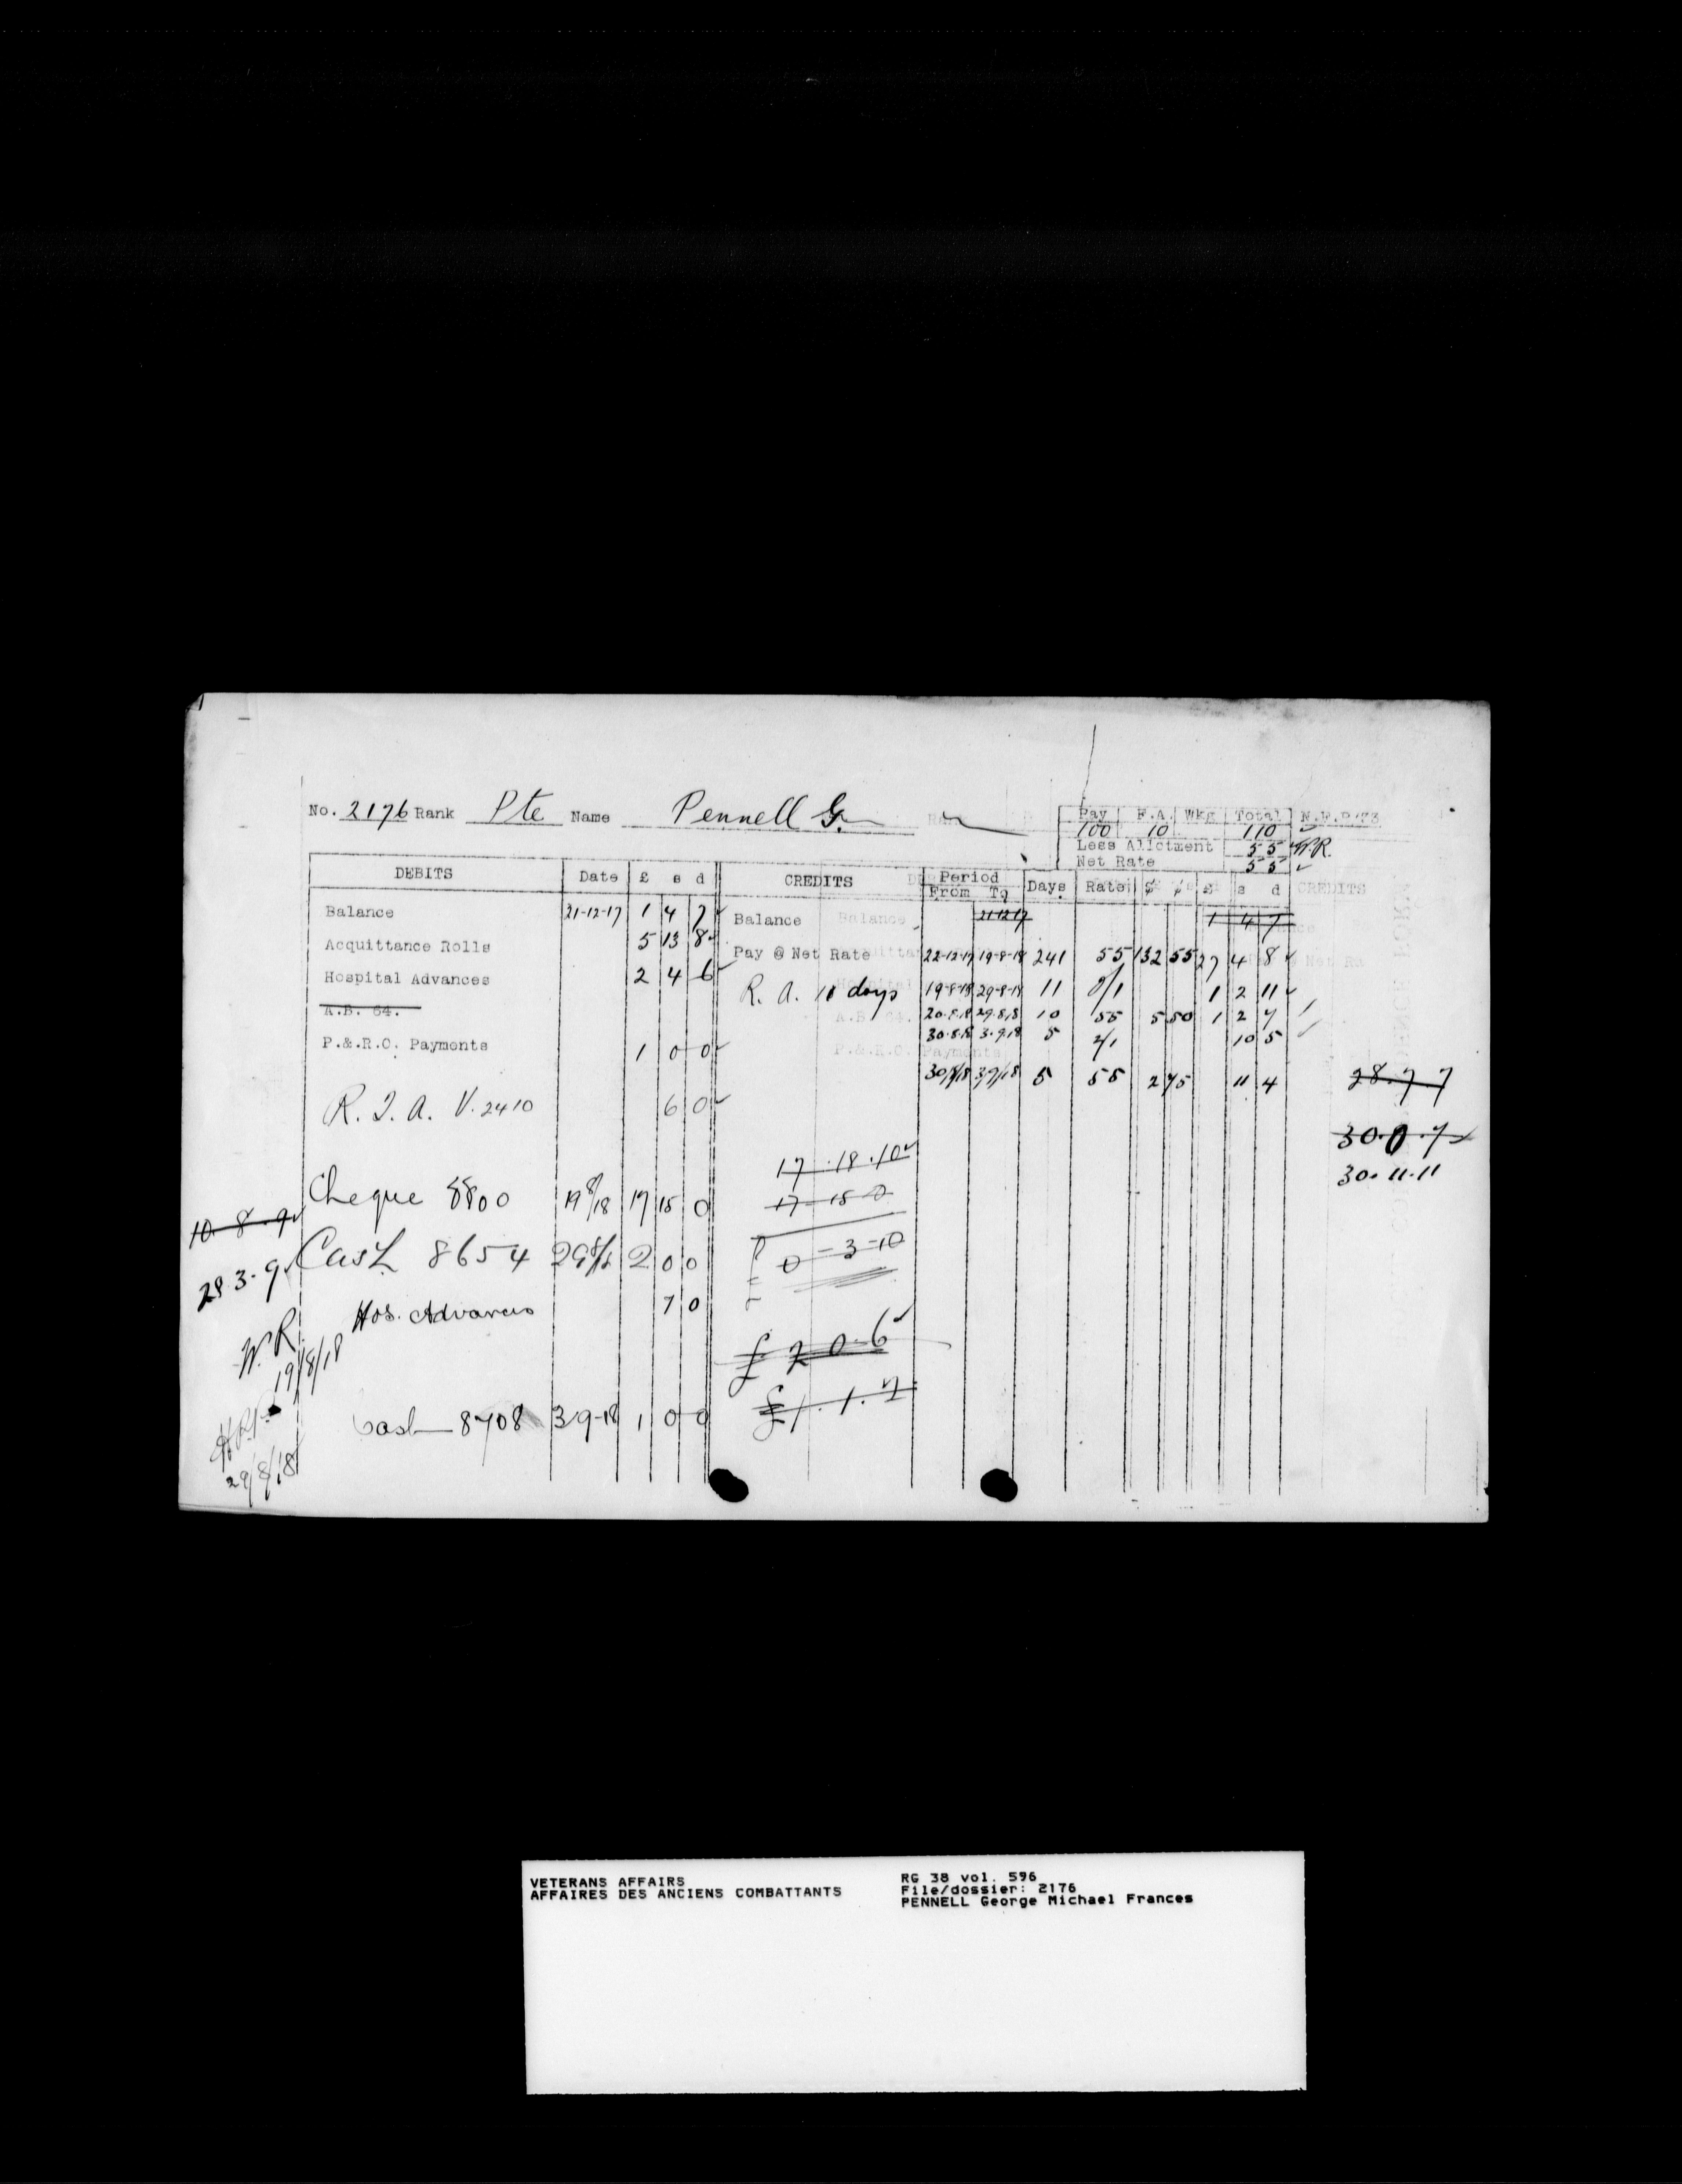 No. 2176 Rank Pte Name Pennell G.
Pay F.A. Wkg Total N.F.P/73
100 10 110
Less Allotment 55 W.R.
Net Rate 55
DEBITS Date £ s d CREDITS Period From To Days Rate $ ¢ £ s d
Balance 21-12-17 1 4 7 Balance 21 12 17 1 4 7
Acquittance Rolls 5 13 8 Pay @ Net Rate 22-12-17 19-8-18 241 55 132 55 27 4 8
Hospital Advances 2 4 6 R. A. 11 days 19-8-18 29-8-18 11 2/1 1 2 11
A.B. 64. 20.8.18 29.8.18 10 55 5 50 1 2 7
30.8.18 3.9.18 5 2/1 10 5
P.&.R.C. Payments 1 0 0
30/8/18 3/9/18 5 55 2 75 11 4 28.7.7
R. I. A. V. 2410 6 0
30.0.7
17.18.10 30.11.11
Cheque 8800 19/8/18 17 15 0 17 15 0
10.8.9
Cash 8654 29/8/18 2 0 0 0-3-10
28.3.9
Hos. Advances 7 0
W.R. 19/8/18
£ 2 0 6
£1.1.7
Cash 8708 3/9-18 1 0 0
29/8/18
VETERANS AFFAIRS RG 38 vol. 596
AFFAIRES DES ANCIENS COMBATTANTS File/dossier: 2176
PENNELL George Michael Frances